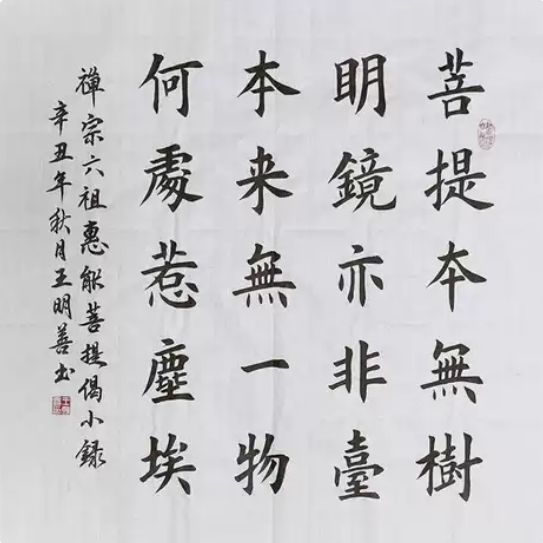 菩提本無樹
明鏡亦非臺
本来無一物
何處惹塵埃
禅宗六祖惠能菩提偈小録
辛丑年秋月王明善书